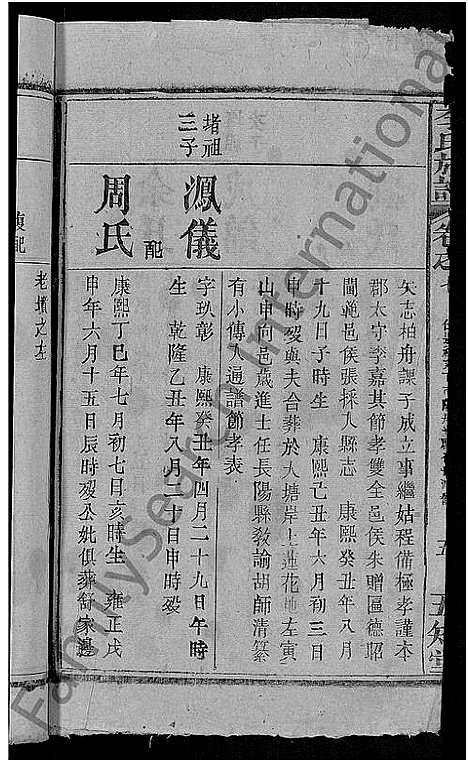 矢志柏舟課子成立事繼姑程備極孝謹本
郡太守李嘉其節孝雙全邑侯朱贈匾德昭
閫範邑侯張採入縣志 康熙癸丑年八月
十九日子時生 康熙己丑年六月初三日
申時歿與夫合葬於大塘岸上蓮花地左寅
山申向邑歲進士任長陽縣教諭胡師清纂
有小傳入通譜節孝表
堵祖三子
鳳儀
字玖彰 康熙癸丑年四月二十九日午時
生 乾隆乙丑年八月二十日申時歿
配
周氏
康熙丁巳年七月初七日亥時生 雍正戊
申年六月十五日辰時歿公妣俱葬舒家邊
老墳之左
配
氏族譜
五
FamilySearch International